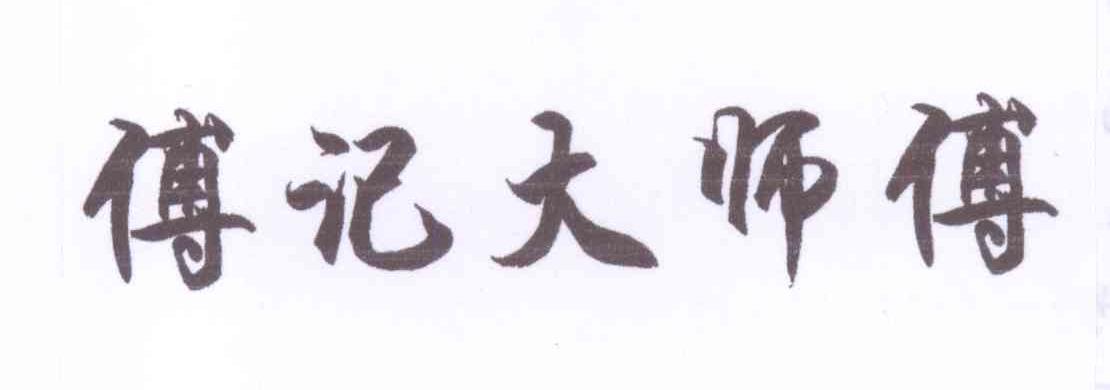 傅记大师傅